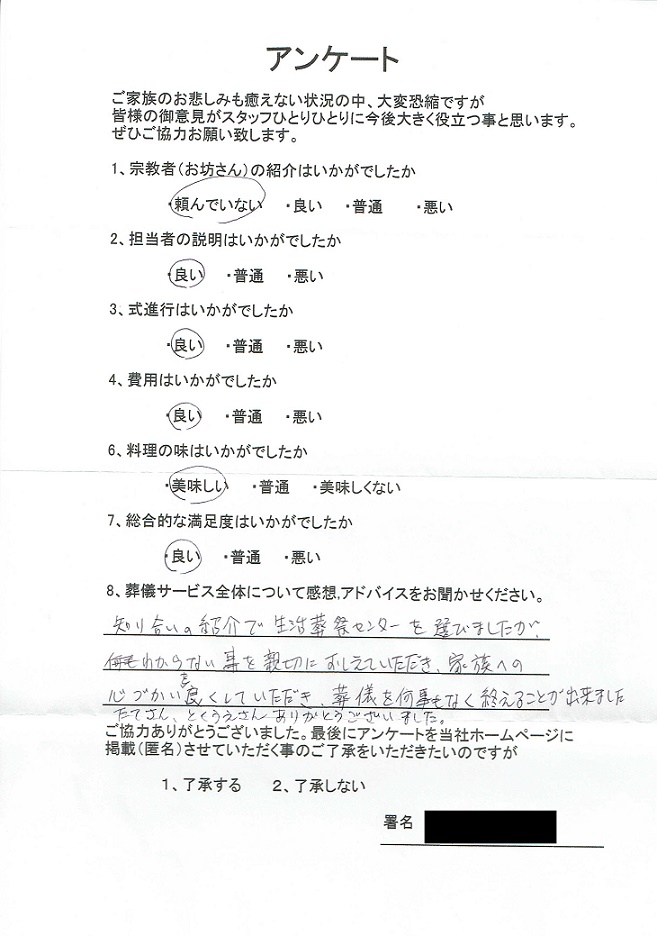 アンケート
ご家族のお悲しみも癒えない状況の中、大変恐縮ですが
皆様の御意見がスタッフひとりひとりに今後大きく役立つ事と思います。
ぜひご協力お願い致します。
1、宗教者(お坊さん)の紹介はいかがでしたか
・頼んでいない ・良い ・普通 ・悪い
2、担当者の説明はいかがでしたか
・良い ・普通 ・悪い
3、式進行はいかがでしたか
・良い ・普通 ・悪い
4、費用はいかがでしたか
・良い ・普通 ・悪い
6、料理の味はいかがでしたか
・美味しい ・普通 ・美味しくない
7、総合的な満足度はいかがでしたか
・良い ・普通 ・悪い
8、葬儀サービス全体について感想,アドバイスをお聞かせください。
知り合いの紹介で生活葬祭センターを選びましたが、
何もわからない事を親切におしえていただき、家族への
心づかいも良くしていただき、葬儀を何事もなく終えることが出来ました
たてさん、とくうえさんありがとうございました。
ご協力ありがとうございました。最後にアンケートを当社ホームページに
掲載(匿名)させていただく事のご了承をいただきたいのですが
1、了承する 2、了承しない
署名